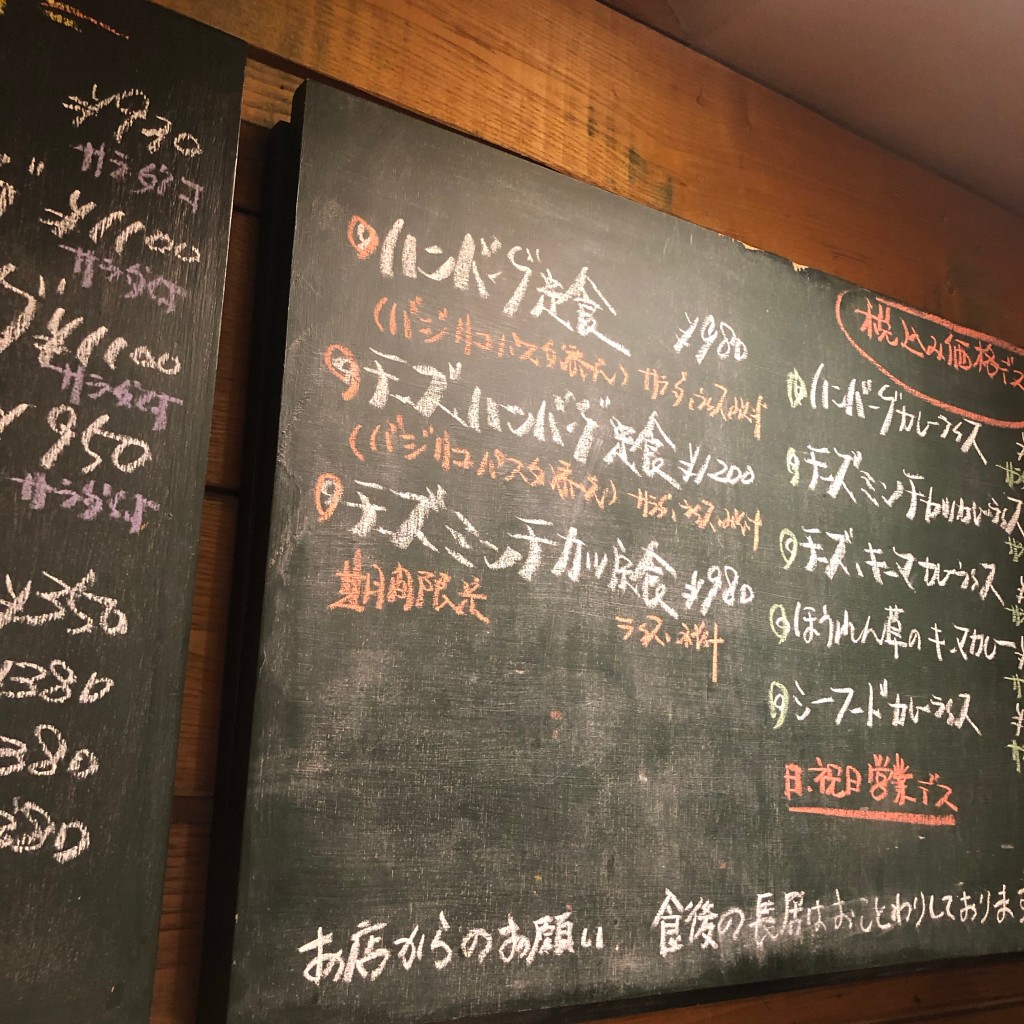 ¥930
サラダ付
¥1100
サラダ付
¥1100
サラダ付
950
サラダ付
¥350
380
380
ハンバーグ定食 ¥980
(バジリコパスタ添え) サラダ、ライス、みそ汁
チーズハンバーグ定食 ¥1200
(バジリコパスタ添え) サラダ、ライス、みそ汁
チーズミンチカツ定食 ¥980
期間限定
ライス、みそ汁
税込み価格デス
ハンバーグカレーライス
チーズミンチカツカレーライス
チーズキーマカレーライス
ほうれん草のキーマカレー
シーフードカレーライス
日、祝日営業デス
お店からのお願い 食後の長居はおことわりしております